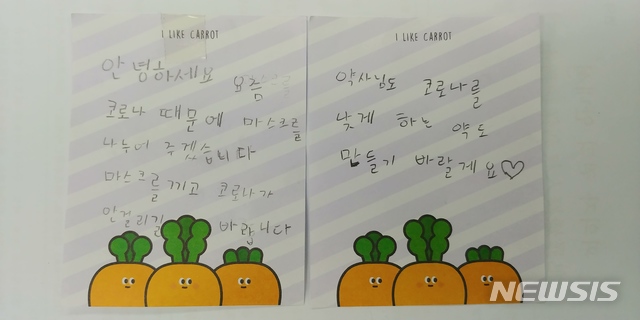 I LIKE CARROT
안녕하세요 요즘
코로나 때문에 마스크를
나누어 주겠습니다
마스크를 끼고 코로나가
안걸리길 바랍니다
I LIKE CARROT
약사님도 코로나를
낮게 하는 약도
만들기 바랄게요♡
NEWSIS